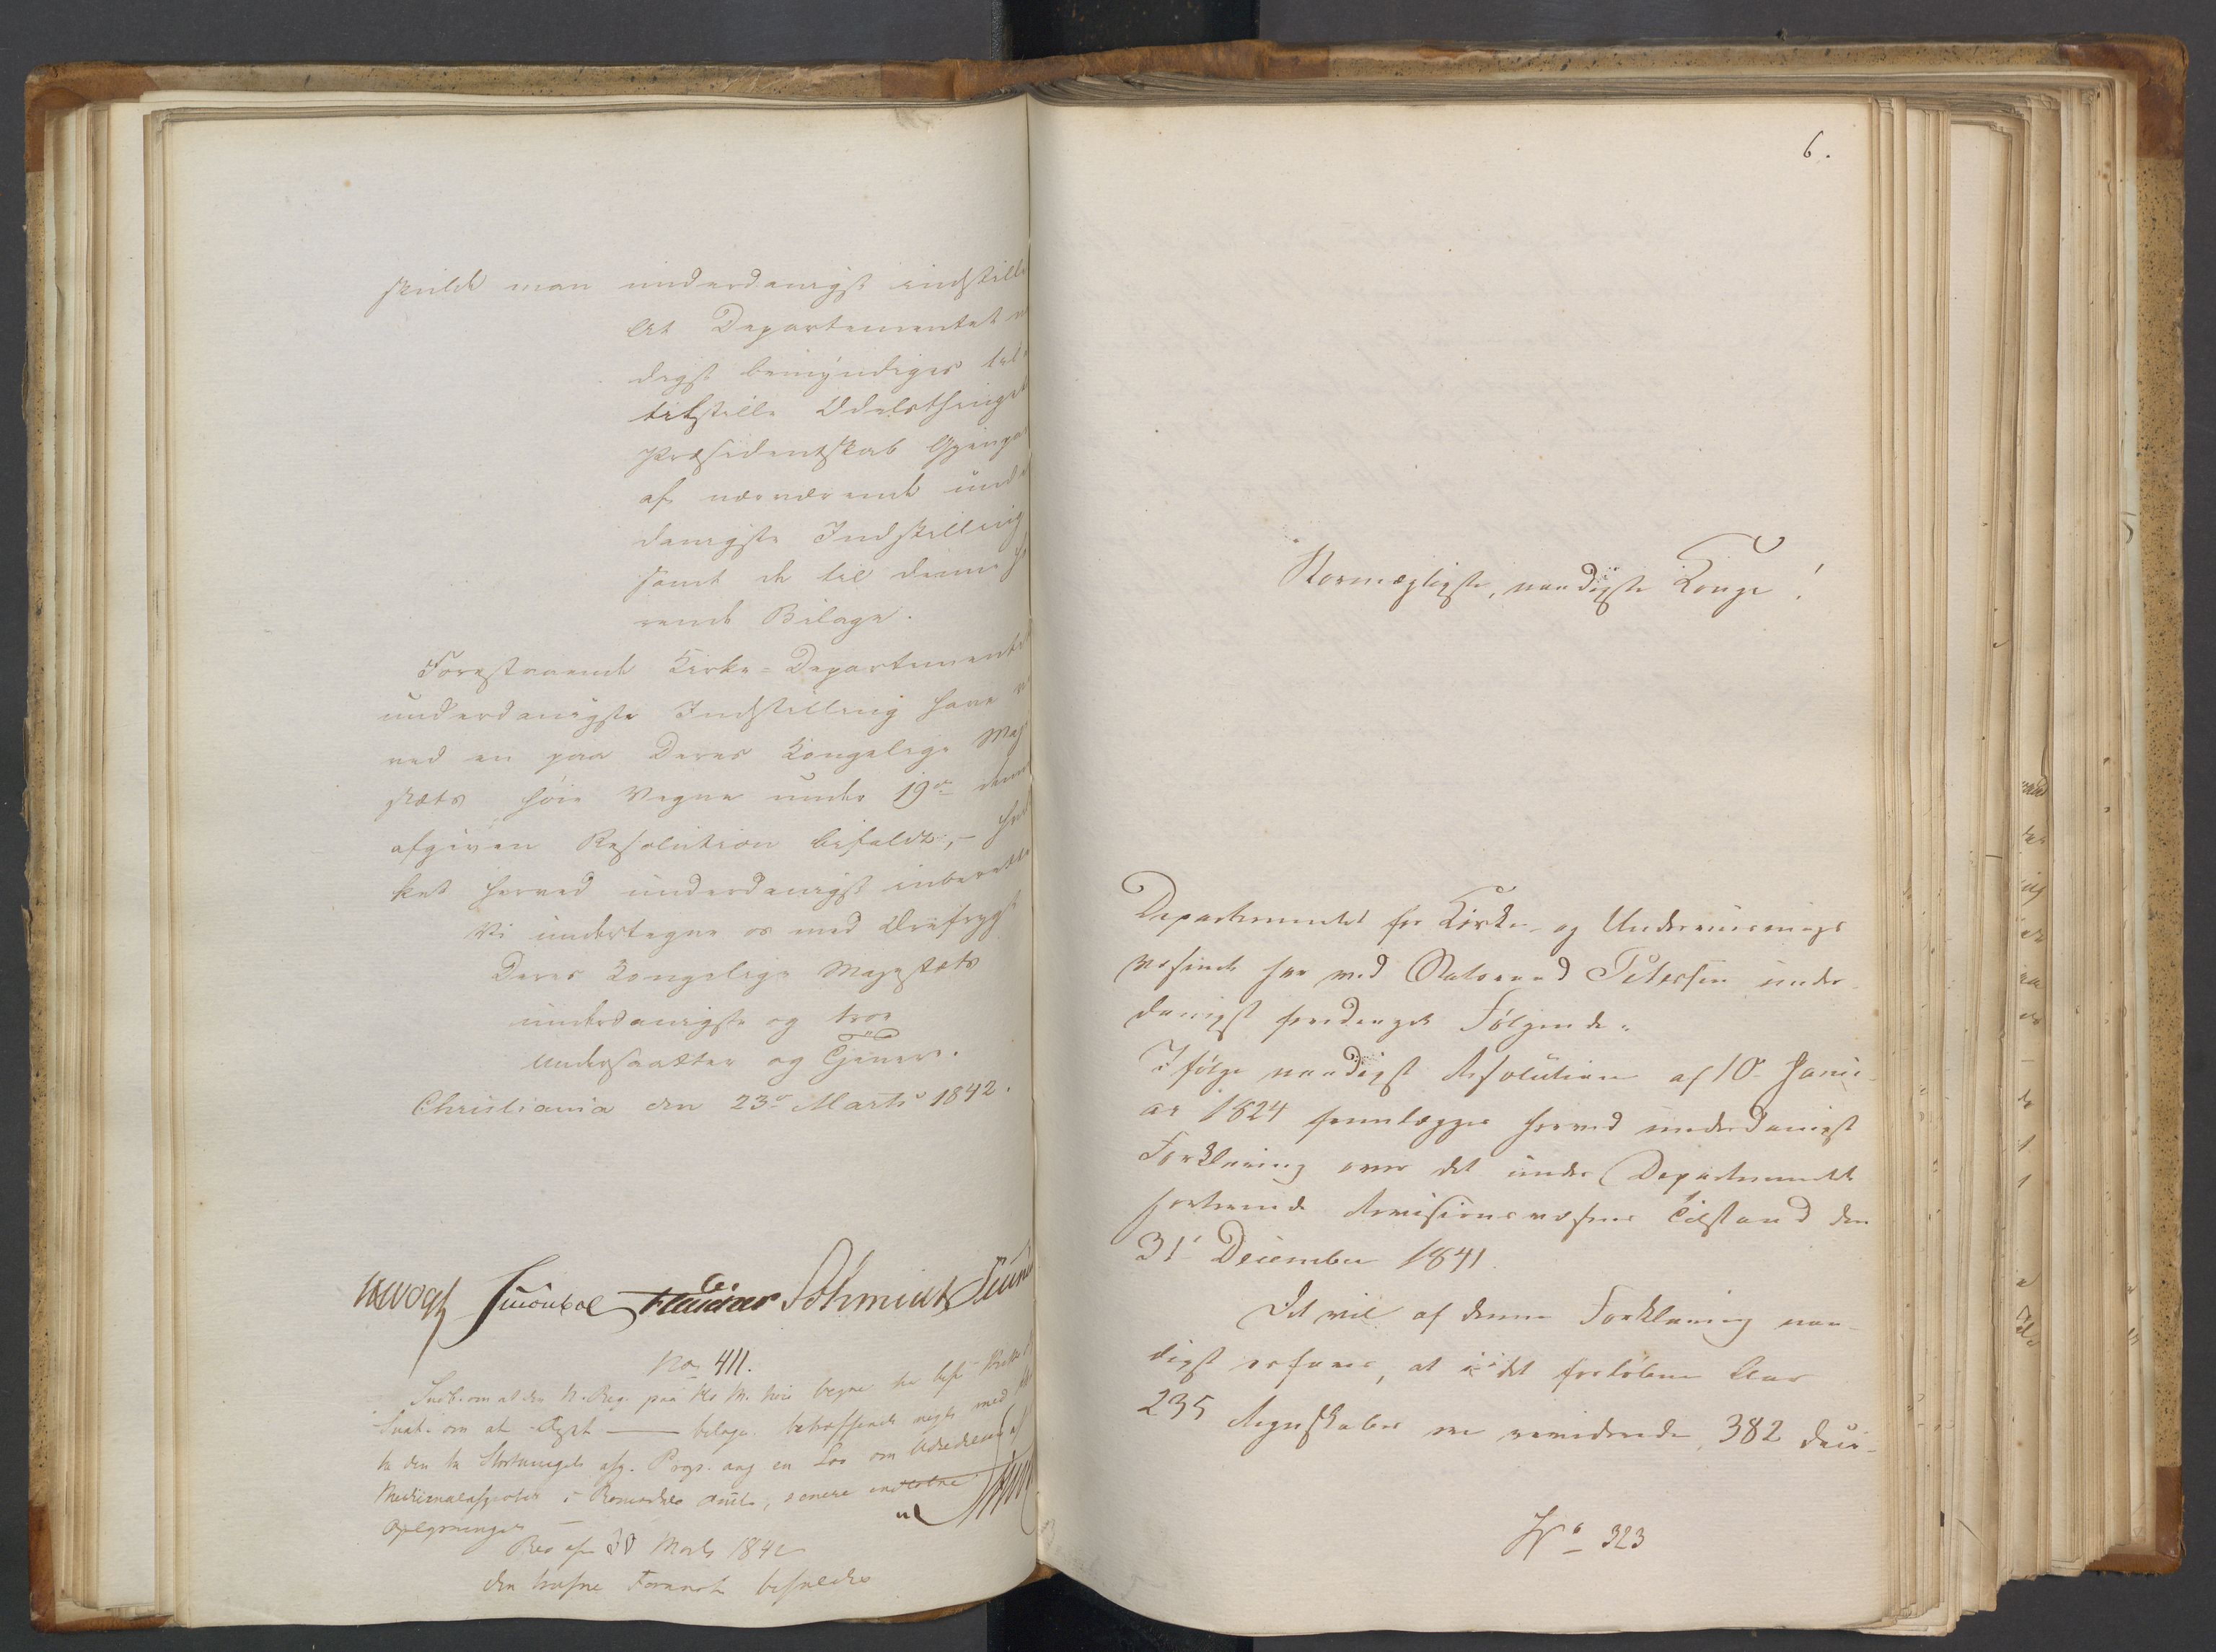 skulde man underdanigst indstille
At Departementet n
digst bemyndiges til
tilstille Odelsthinget
Præsidentskab Gjenpa
af nærværende unde
danigste Indstilling
samt de til denne h
rende Bilage.
Forestaaende Kirke-Departements
underdanigste Indstilling have v
ved en paa Deres Kongelige Maj
stæts høie Vegne under 19de denne
afgiven Resolution bifaldt, - hvil
ket herved underdanigst indberettes
Vi undertegne os med Ærefrygt
Deres Kongelige Majestæts
underdanigste og troe
Undersaatter og Tjenere.
Christiania den 23de Marts 1842.
Vogt Schmidt
No 411.
Indb. om at den N. Reg. paa Ks M. høie Vegne har bif. Kirke D
Indst. om at Dept bilage. betræffende med
den Storthingets Prop. ang en Lov om Udredelsen af
i senere indkomne
Oplysninger
Res af 30 Marts 1842
den trufne Foranst. bifaldes
6.
Stormægtigste, naadigste Konge!
Departementet for Kirke- og Underviisnings
væsenet har ved Statsraad Petersen under-
danigst foredraget Følgende:
Ifølge naadigst Resolution af 10de Janu-
ar 1824 fremlægges herved underdanigst
Forklaring over det under Departementet
sorterende Revisionsvæsens Tilstand den
31te December 1841.
Det vil af denne Forklaring naa-
digst erfares, at i det forløbne Aar
235 Regnskaber ere reviderede, 382 deci-
No 323